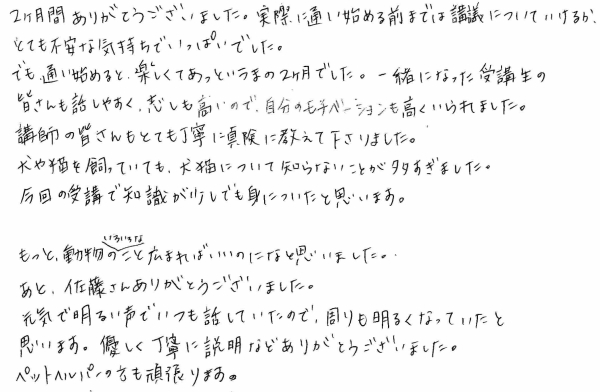 2ヶ月間ありがとうございました。実際に通い始める前までは講議についていけるか、
とても不安な気持ちでいっぱいでした。
でも、通い始めると、楽しくてあっというまの2ヶ月でした。一緒になった受講生の
皆さんも話しやすく、志しも高いので、自分のモチベーションも高くいられました。
講師の皆さんもとても丁寧に真険に教えて下さりました。
犬や猫を飼っていても、犬猫について知らないことが多すぎました。
今回の受講で知識が少しでも身についたと思います。
いろいろな
もっと、動物のこと広まればいいのになと思いました。
あと、佐藤さんありがとうございました。
元気で明るい声でいつも話していたので、周りも明るくなっていたと
思います。優しく丁寧に説明などありがとうございました。
ペットヘルパーの方も頑張ります。